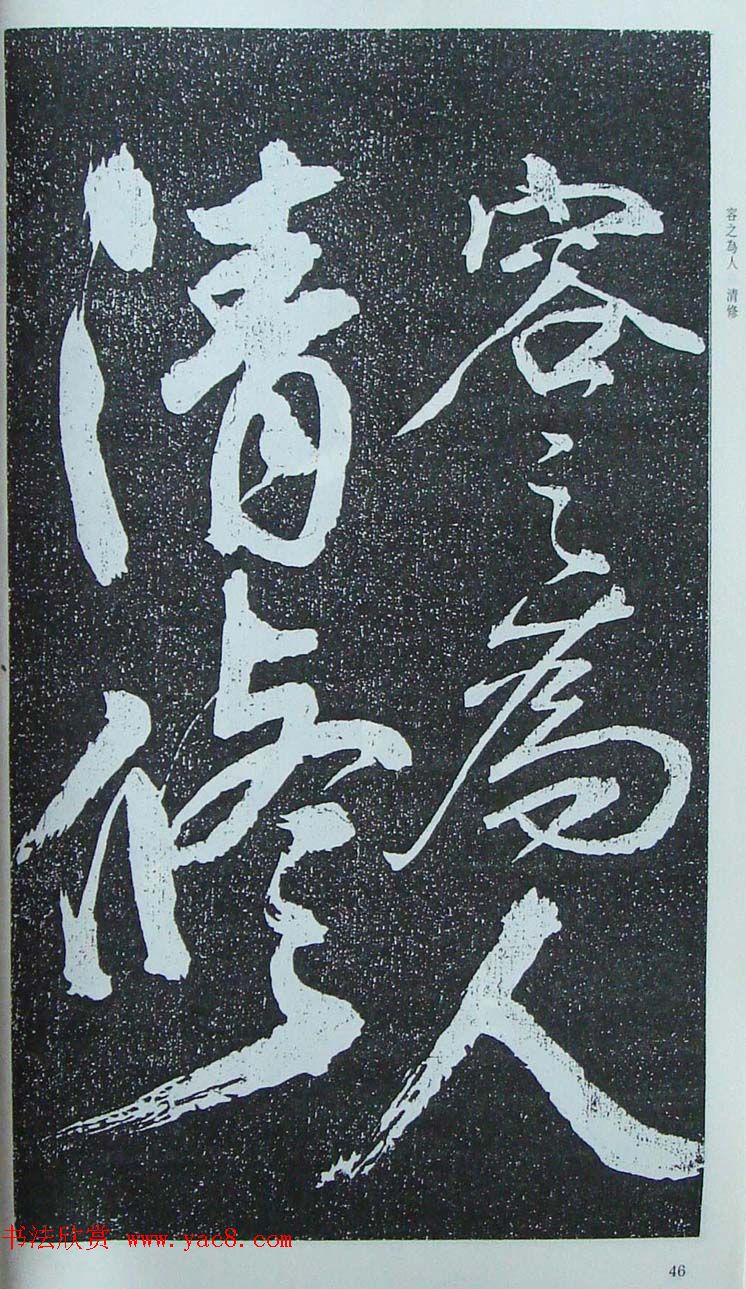 容之為人
清修
容之為人 清修
书法欣赏 www.yac8.com
46